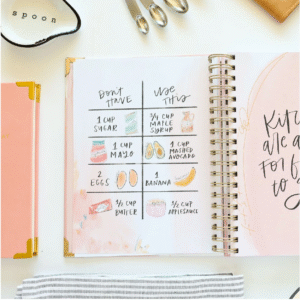 spoon
Don't HAVE
Use THIS
1 CUP SUGAR
3/4 CUP MAPLE SYRUP
1 CUP MAYO
1 CUP MASHED AVOCADO
2 EGGS
1 BANANA
1/2 CUP BUTTER
1/2 CUP APPLESAUCE
are a
FOR
to